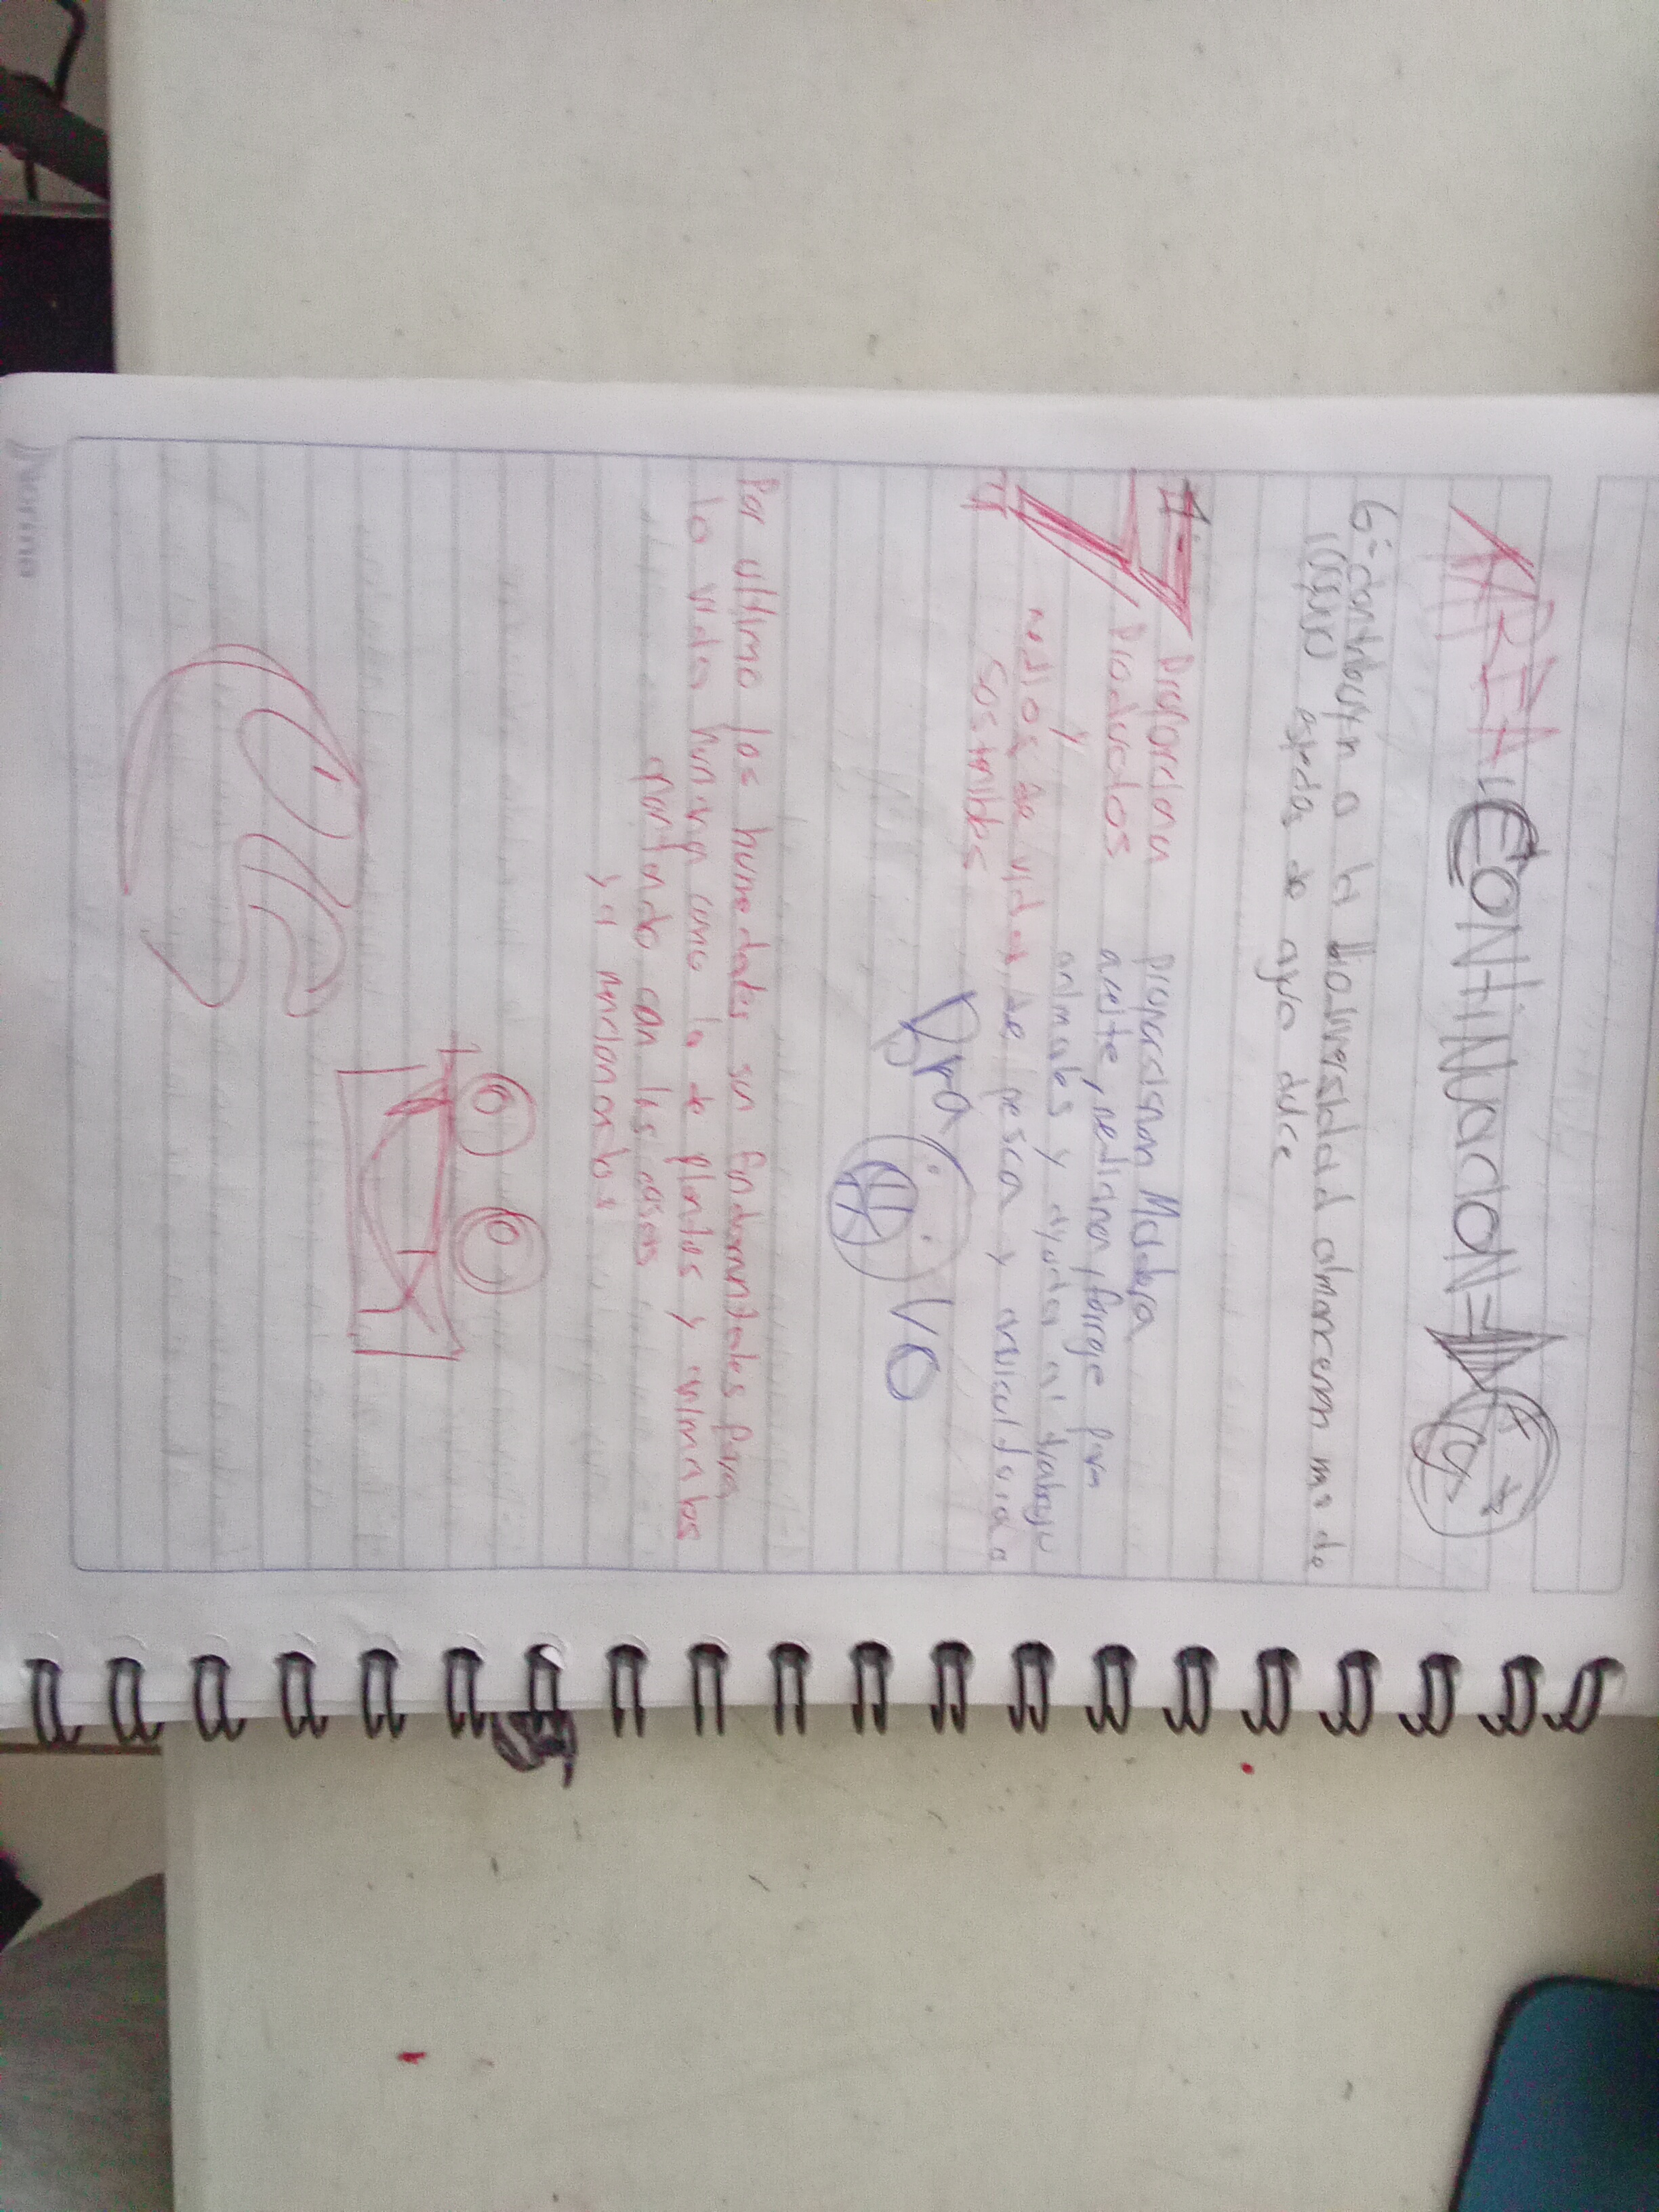 TAREA: CONTINUACION
6:- Contribuyn a la Biodiversidad almancenan ms de
100,000 especies de agua dulce
7-
Proporcionan proporcionan Madera
Productos aceite, medicina, forrje para
y animales y ayudan al trabajo
medios de vida de pesca y acuicultura
Sostenibles
Bra vo
Por ultimo los humedales sun fundamentales para
la vida humana como la de plantas y animales
aportando con las cosas
ya mencionandos
Norma